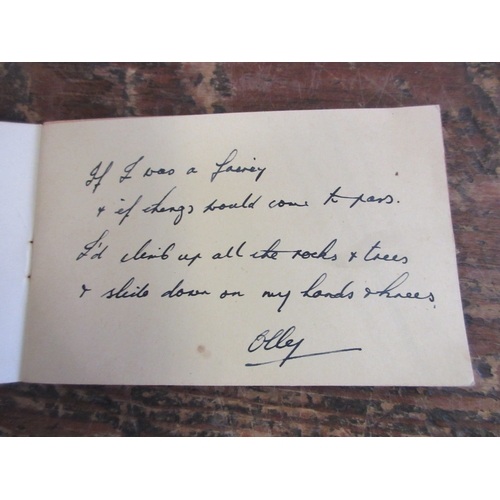 If I was a fairey
& if things would come to pass.
I'd climb up all the rocks & trees
& slide down on my hands & knees.
Olley